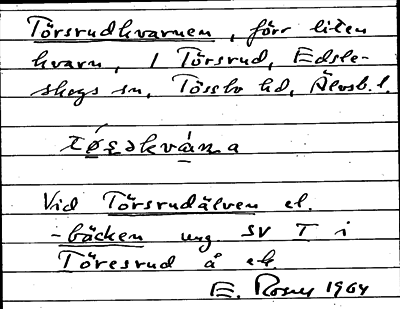 Törsrudkvarnen, förr liten
kvarn, i Törsrud, Edsle-
skogs sn, Tössbo hd, Älvsb. l.
Vid Törsrudälven el.
-bäcken ung SV T i
Töresrud å ek.
E. Rosny 1964